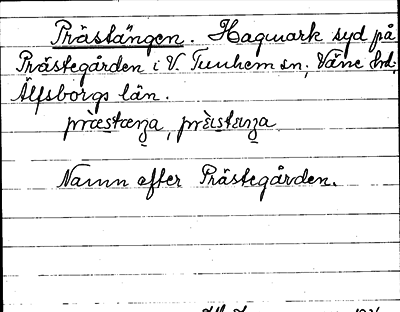 Prästängen. Hagmark syd på
Prästegården i V. Tunhem sn, Väne hd.
Älfsborgs län.
præstæŋa, prɛ̀istɛŋa
Namn efter Prästegården.